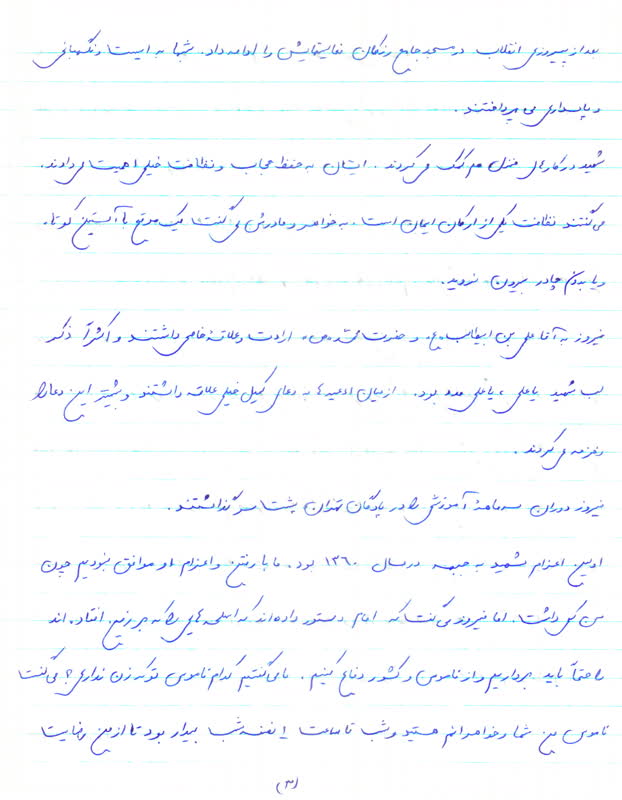 بعد از پیروزی انقلاب در مسجد جامع رزکان فعالیتهایش را ادامه داد. شبها به ایست و نگهبانی
و پاسداری می پرداختند.
شهید در کارهای منزل هم کمک می کردند. ایشان به حفظ حجاب و نظافت خیلی اهمیت می دادند.
می گفتند نظافت یکی از ارکان ایمان است، به خواهر و مادرش می گفت: یک موقع با آستین کوتاه.
و یا بدون چادر بیرون نروید.
فیروز به آقا علی بن ابیطالب «ع» و حضرت محمد «ص» ارادت و علاقۀ خاصی داشتند و اکثرآ ذکر
لب شهید یا علی، یا علی مدد بود. از میان ادعیه ها به دعای کمیل خیلی علاقه داشتند و بیشتر این دعا را
زمزمه می کردند.
فیروز دوران سه ماهۀ آموزشی را در پادگان تهران پشت سر گذاشتند.
اولین اعزام شهید به جبهه در سال ۱۳۶۰ بود. ما با رفتن و اعزام او موافق نبودیم چون
سن کمی داشت. اما فیروز می گفت که امام دستور داده اند که اسلحه هایی را که بر زمین افتاده اند
را حتمآ باید برداریم و از ناموس و کشور دفاع کنیم. ما می گفتیم کدام ناموس تو که زن نداری؟ می گفت
ناموس من شما و خواهرانم هستید و شب تا ساعت ۱ نصفه شب بیدار بود تا از من رضایت
(۳)